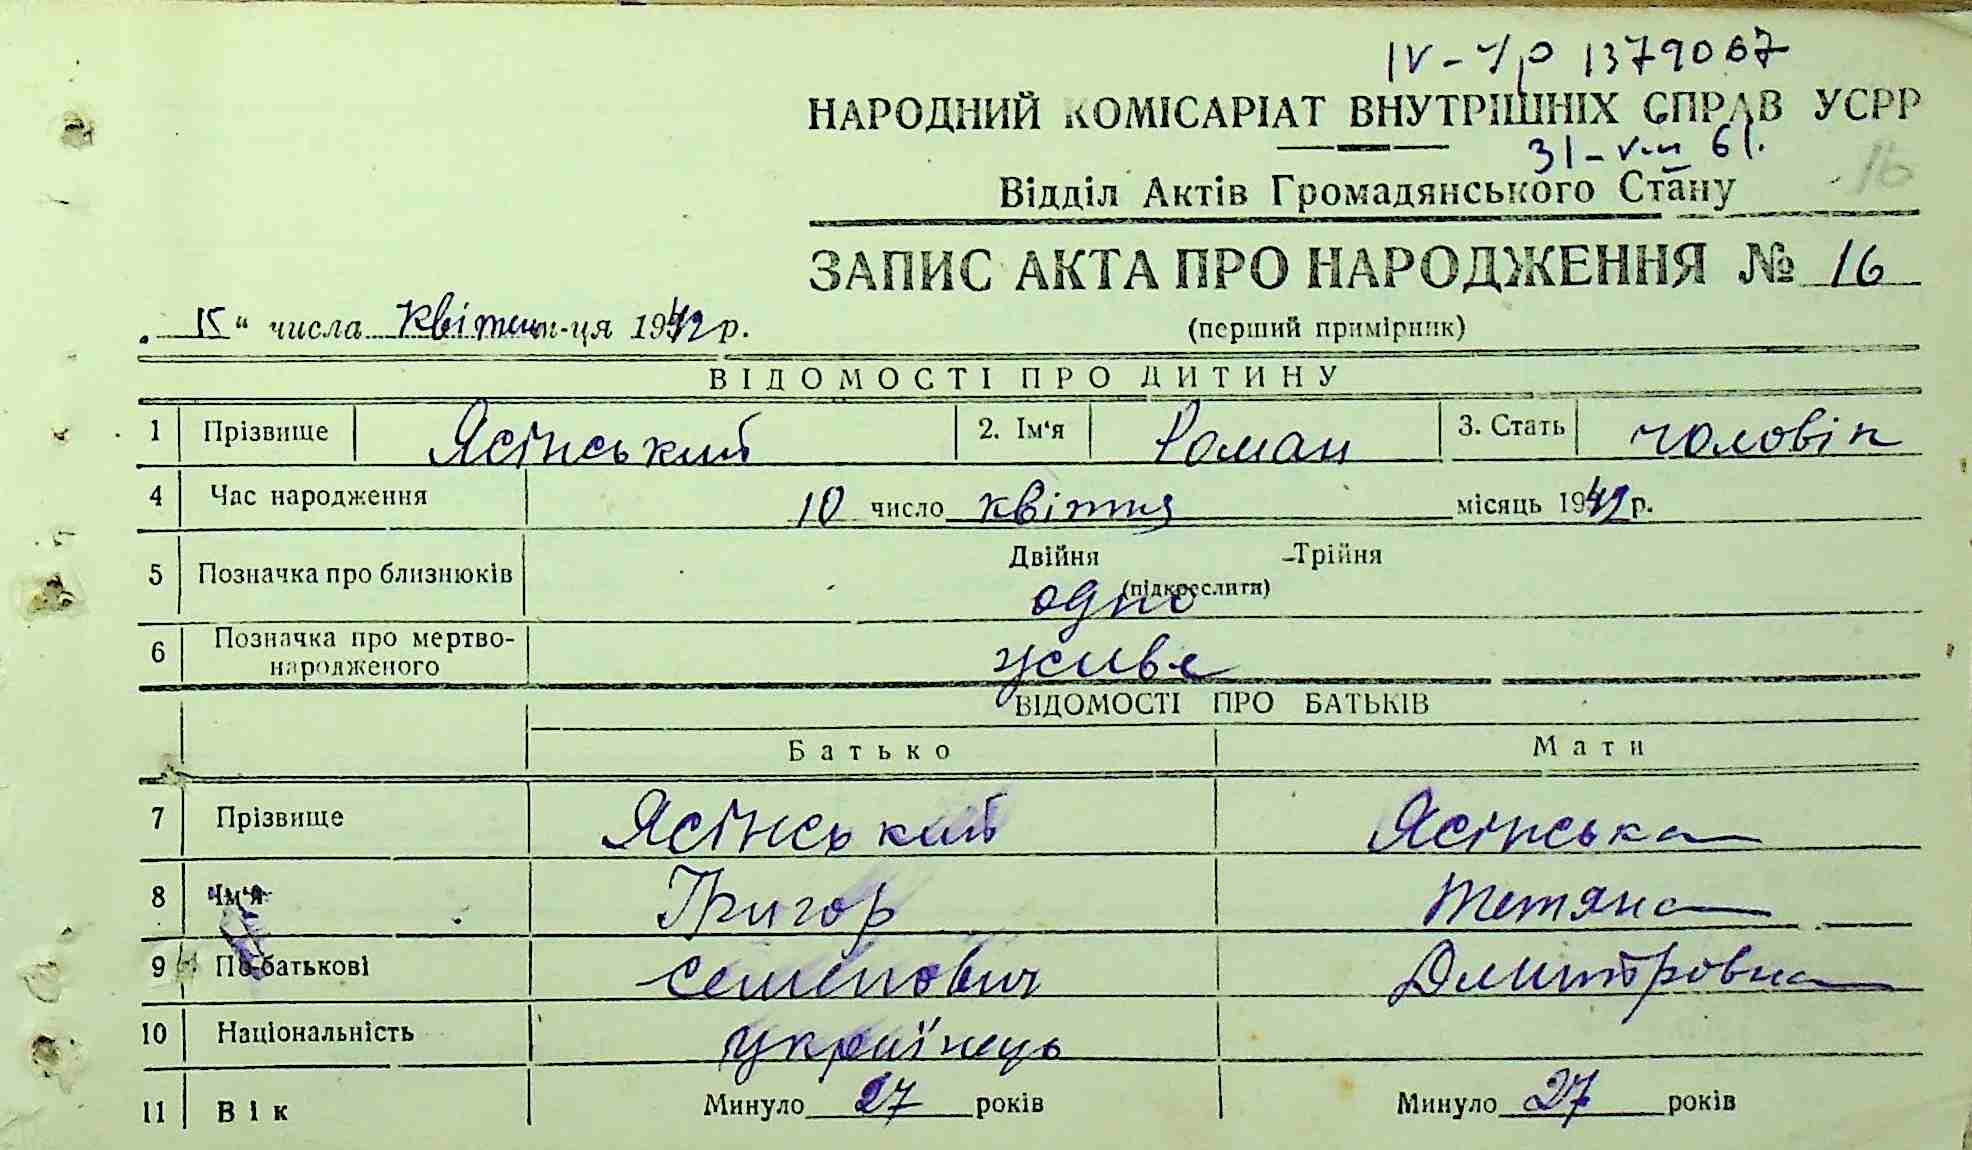 IV-ЧР 1379067
НАРОДНИЙ КОМІСАРІАТ ВНУТРІШНІХ СПРАВ УСРР
31-VIII 61.
Відділ Актів Громадянського Стану 16
ЗАПИС АКТА ПРО НАРОДЖЕННЯ № 16
„15“ числа квітня м-ця 1942 р. (перший примірник)
ВІДОМОСТІ ПРО ДИТИНУ
1 Прізвище Ясінський 2. Ім‘я Роман 3. Стать чоловік
4 Час народження 10 число квітня місяць 1942 р.
5 Позначка про близнюків Двійня -Трійня
(підкреслити)
одно
6 Позначка про мертво-
народженого живе
ВІДОМОСТІ ПРО БАТЬКІВ
Батько Мати
7 Прізвище Ясінський Ясінська
8 Ім‘я Григор Тетяна
9 По-батькові Семенович Димитровна
10 Національність українець
11 Вік Минуло 27 років Минуло 27 років